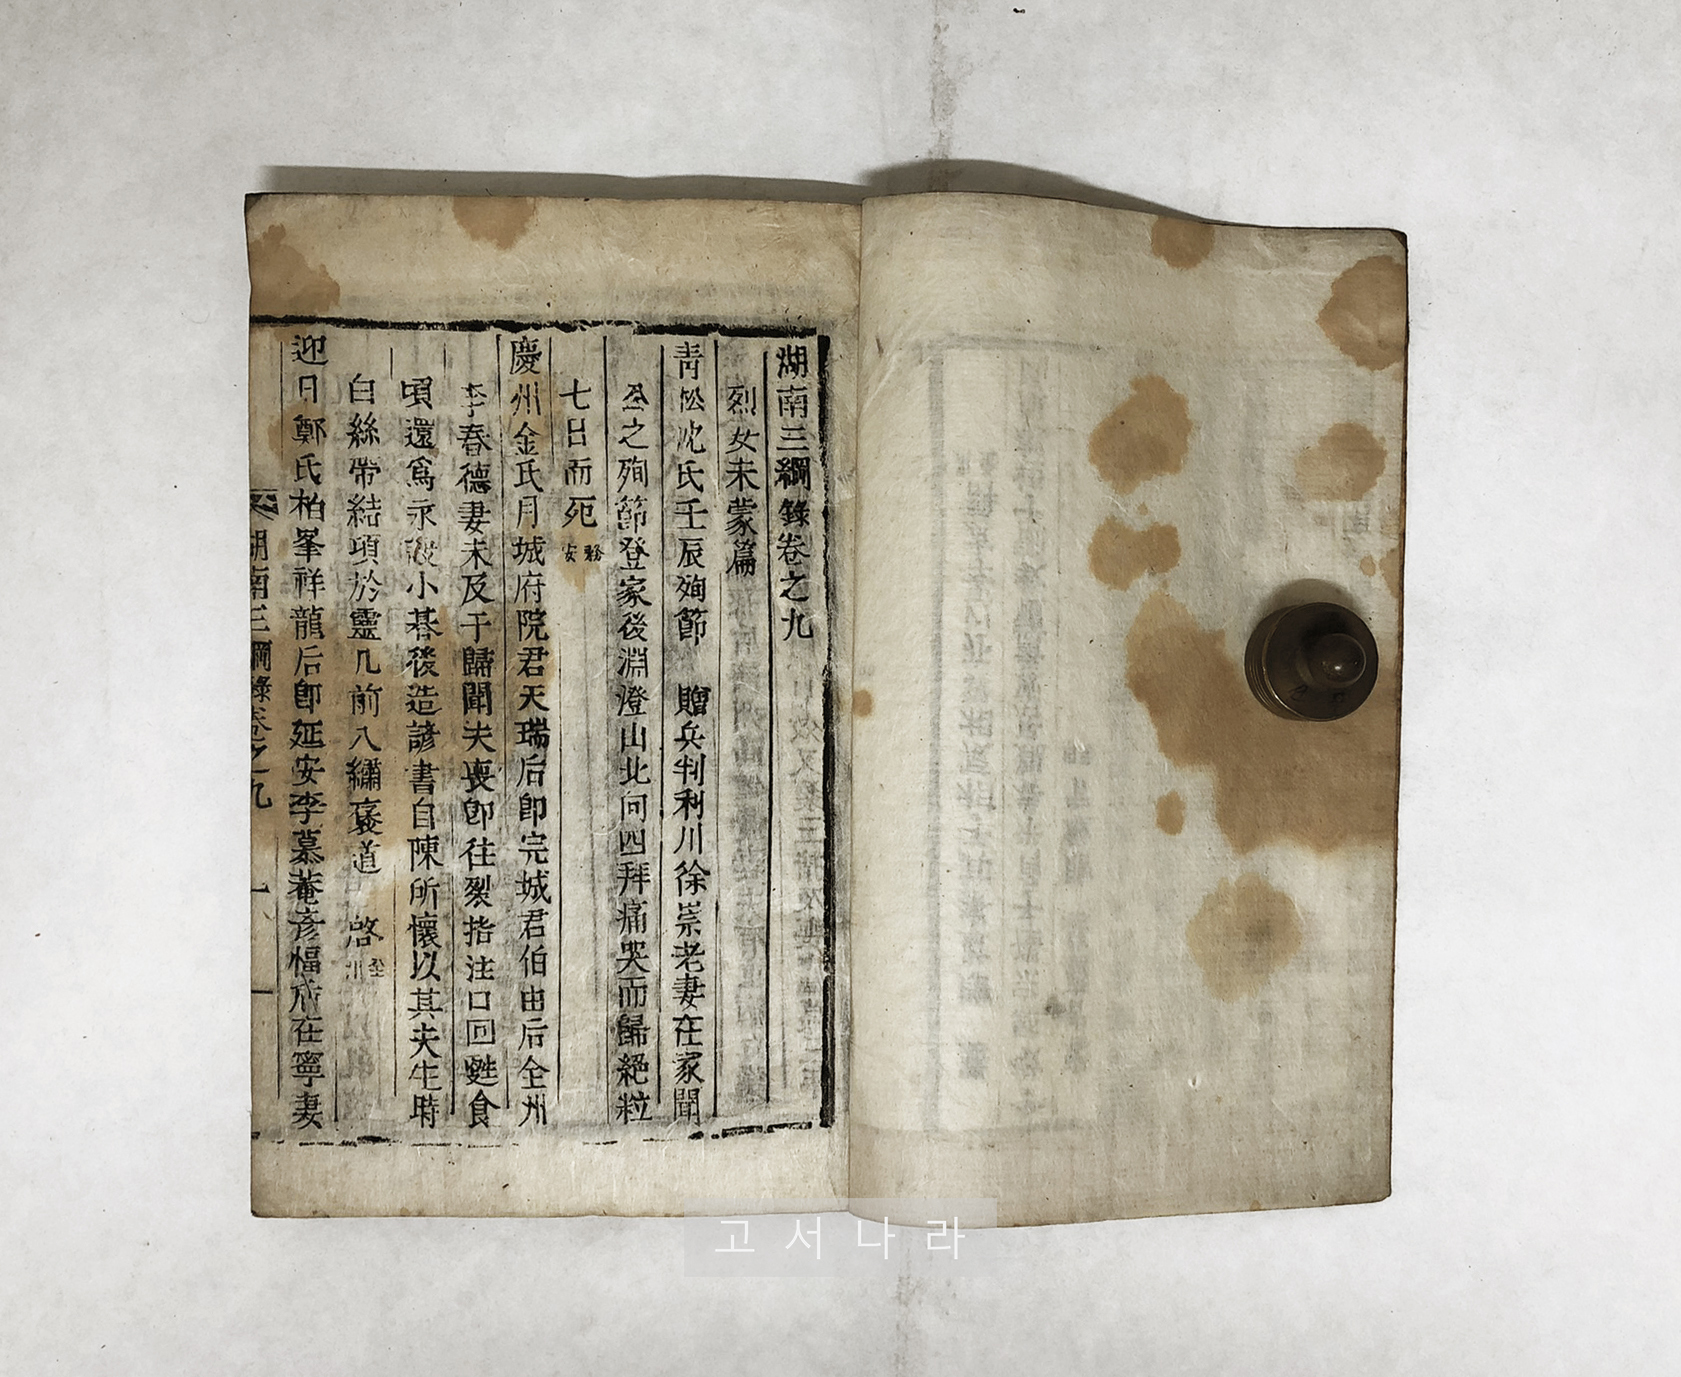 湖南三綱錄卷之九
烈女未蒙篇
靑松沈氏壬辰殉節 贈兵判利川徐崇老妻在家聞
全之殉節登家後淵澄山北向四拜痛哭而歸絕粒
七日而死 務安
慶州金氏月城府院君天瑞后卽完城君伯由后全州
李春德妻未及于歸聞夫喪卽往裂指注口回甦食
頃還爲永 小朞後造諺書自陳所懷以其夫生時
白絲帶結項於靈几前八繡褒道 啓 全州
迎日鄭氏柏峯祥龍后卽延安李慕菴彥 在寧妻
湖南三綱錄卷之九 一
고서나라